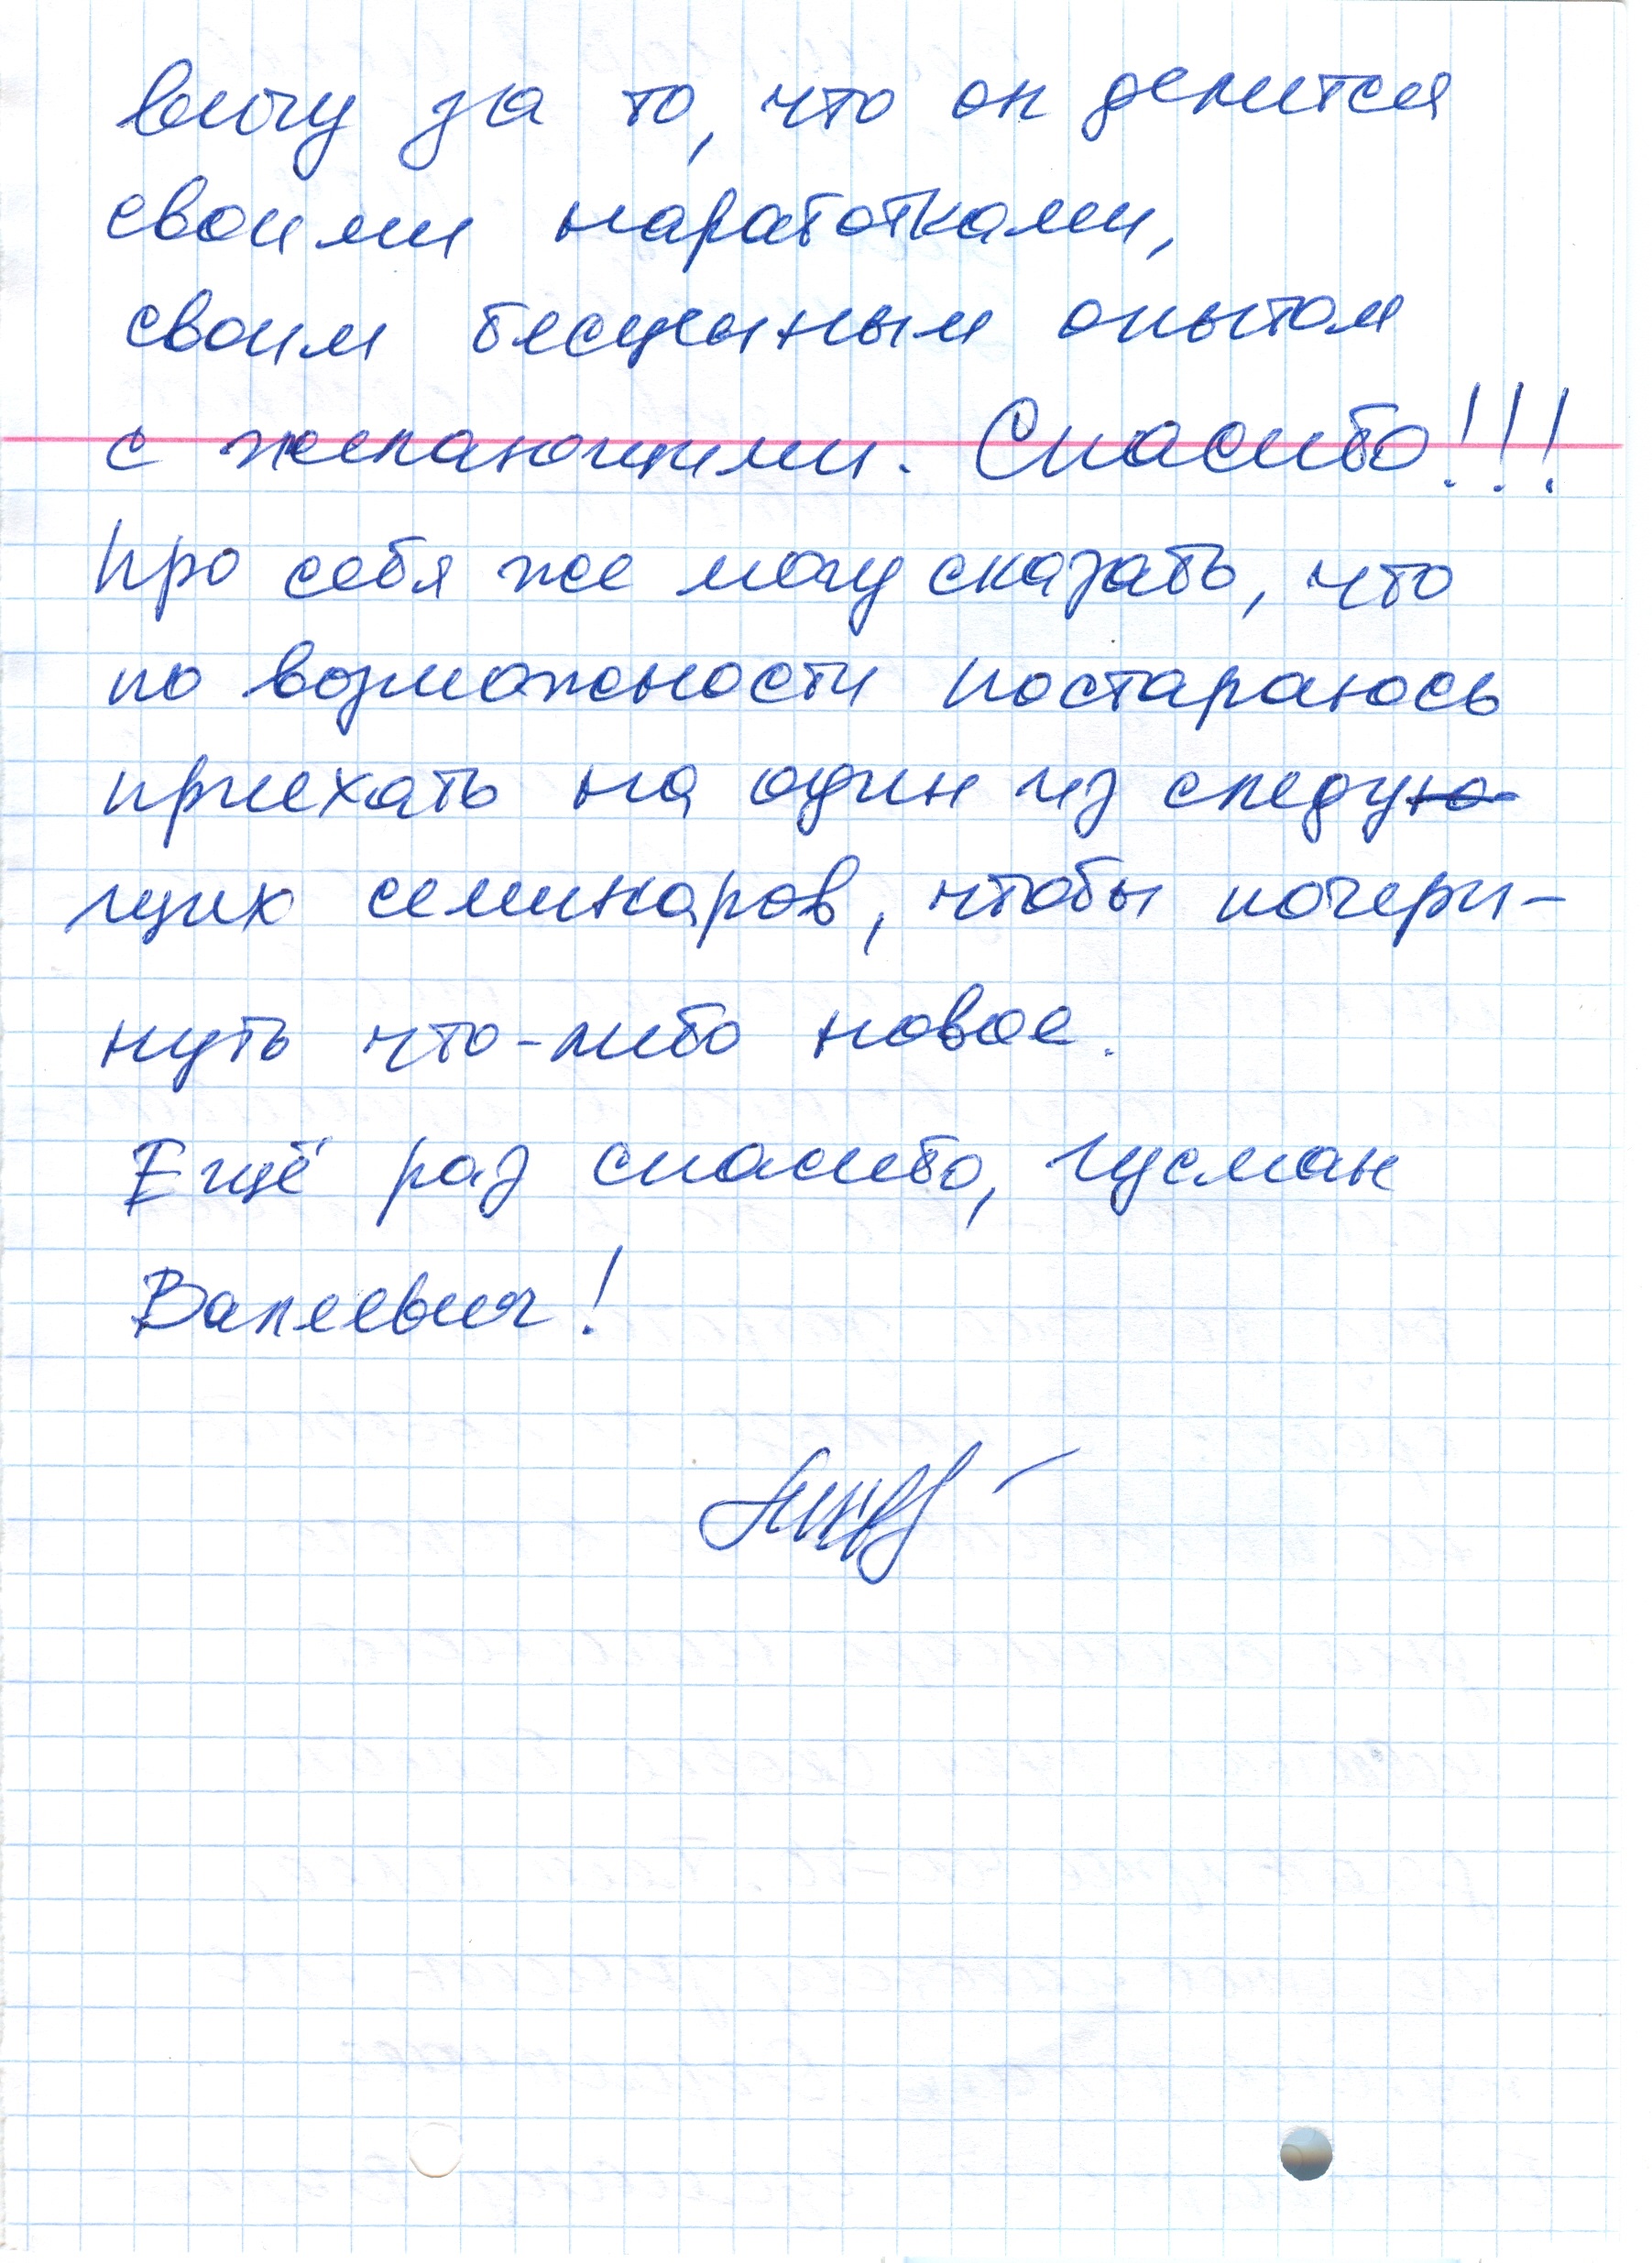 вичу за то, что он делится
своими наработками,
своим бесценным опытом
с желающими. Спасибо!!!
Про себя же могу сказать, что
по возможности постараюсь
приехать на один из следую-
щих семинаров, чтобы почерп-
нуть что-либо новое.
Ещё раз спасибо, Гусман
Валеевич!